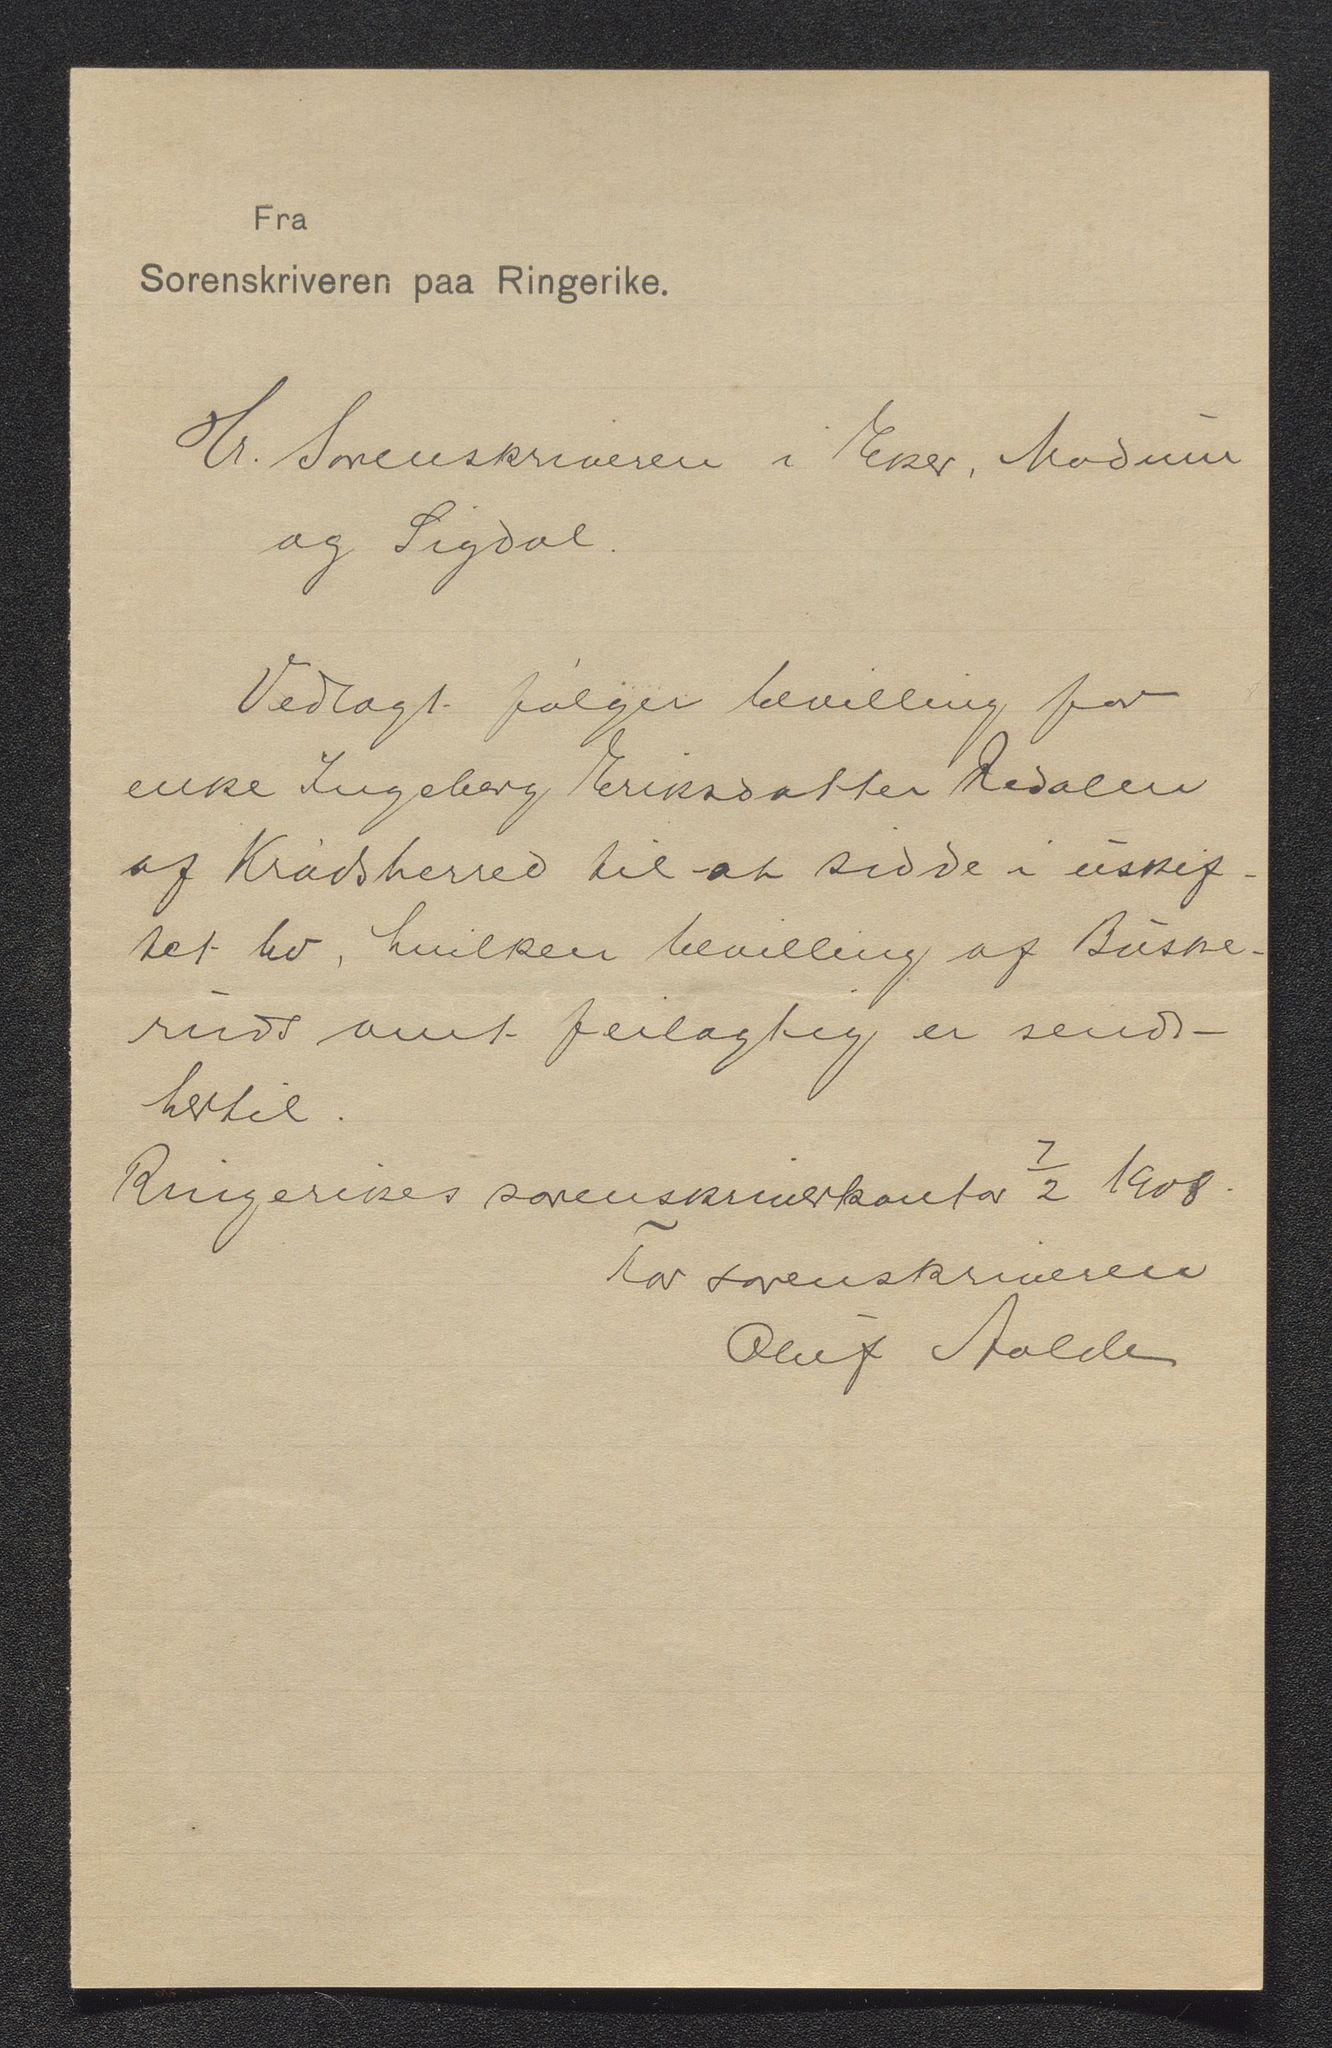 Fra
Sorenskriveren paa Ringerike.
Hr. Sorenskriveren i Eker, Modum
og Sigdal.
Vedlagt følger bevilling for
enke Ingeberg Eriksdatter Redalen
af Krødsherred til at sidde i uskif-
tet bo, hvilken bevilling af Buske-
ruds amt feilagtig er sendt
hertil.
Ringerikes sorenskriverkontor 7/2 1908.
For sorenskriveren
Oluf Aalde